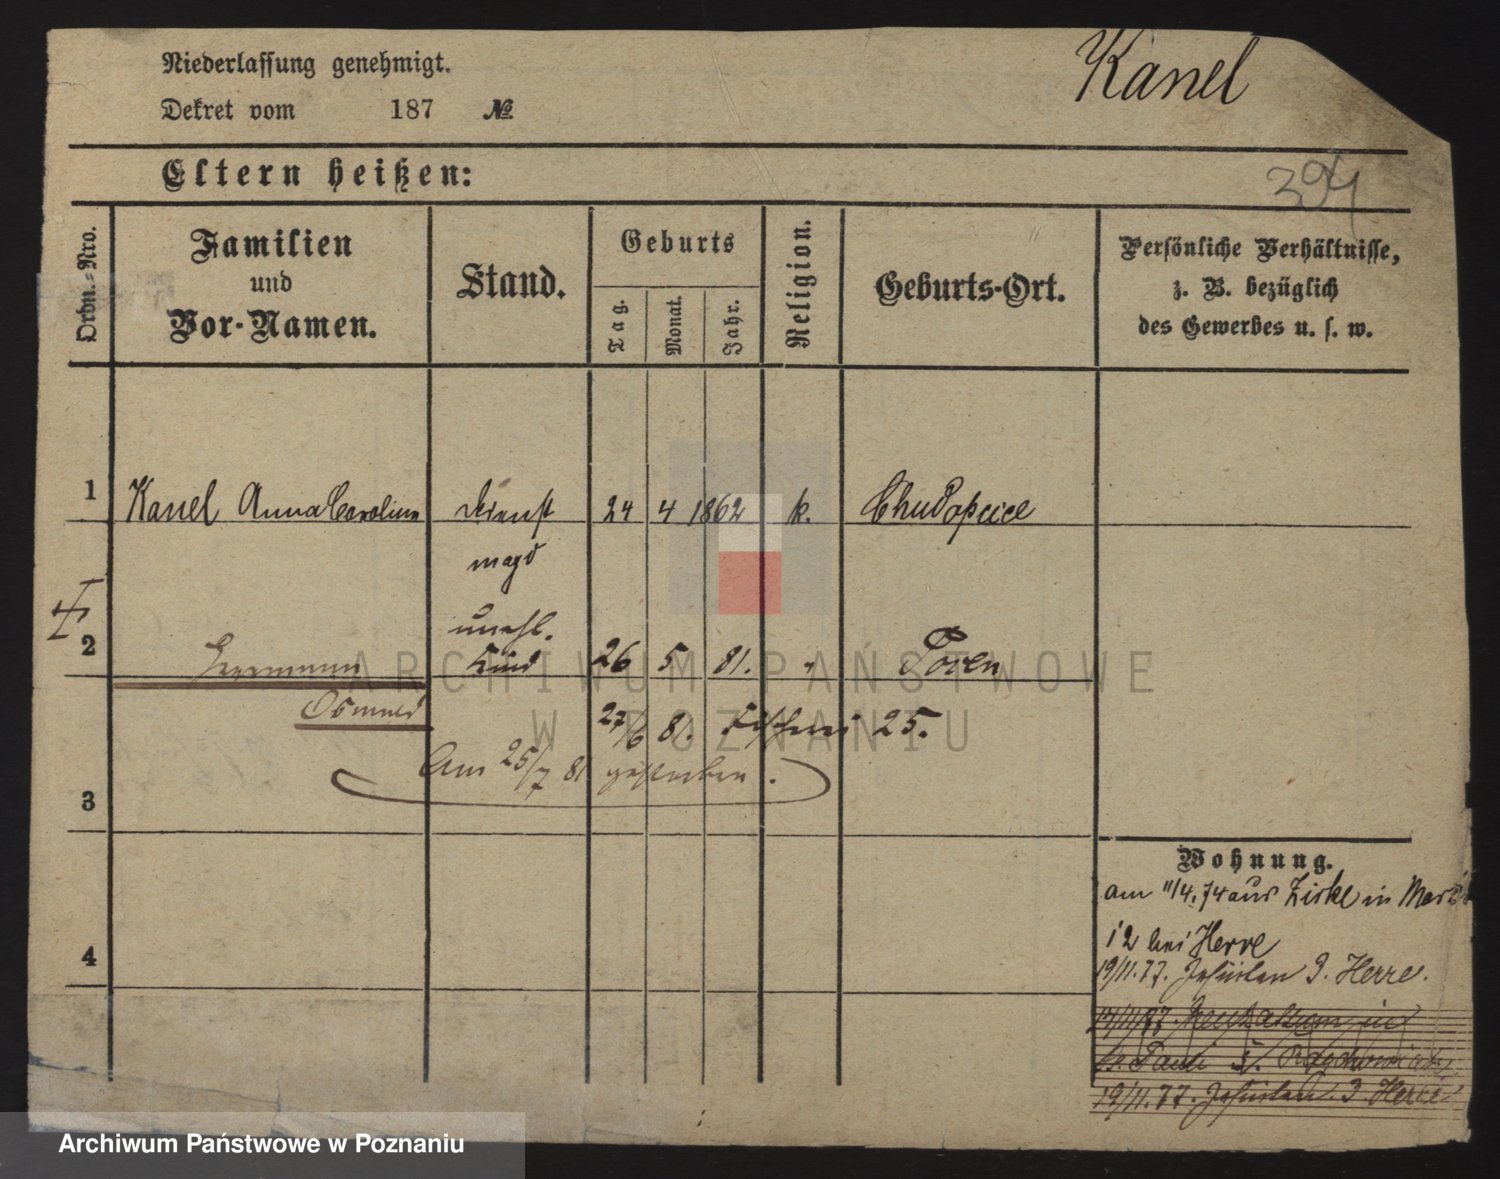 Niederlassung genehmigt.
Kanel
Dekret vom 187 №
Eltern heißen:
394
Ordn.-Nro.
Familien und Vor-Namen.
Stand.
Geburts
Tag.
Monat.
Jahr.
Religion.
Geburts-Ort.
Persönliche Verhältnisse,
z. B. bezüglich
des Gewerbes u. s. w.
1 Kanel Anna Caroline Dienst 24 4 1862 k. Chudopsice
magd
unehl.
2 Herrmann Kind 26 5 81. " Posen
Oswald 27/6 81. Fischerei 25.
Am 25/7 81 gestorben.
3
Wohnung.
am 11/4.74 aus Zirke in
12 bei Herre
4
19/11.77. Jesuiten 9. Herre.
19/11.77. Jesuiten Herre
ARCHIWUM PAŃSTWOWE
W POZNANIU
Archiwum Państwowe w Poznaniu